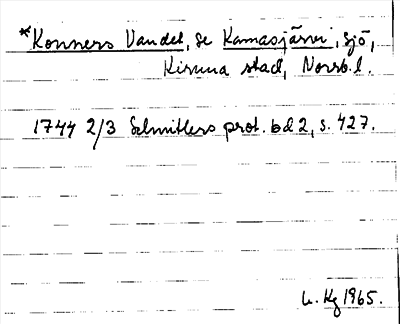 *Konners Vandet, se Kamasjärvi, sjö,
Kiruna stad, Norrb. l.
1744 2/3 Schnitlers prot. bd 2, s. 427.
L. Kg 1965.